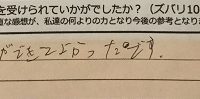 を受けられていかがでしたか？（ズバリ10
直な感想が、私達の何よりの力となり今後の参考となりま
ができてよかったです。